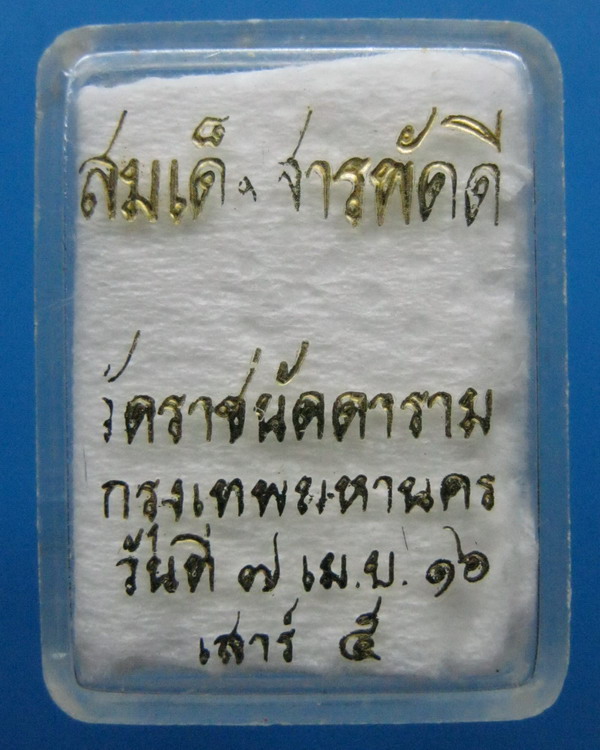 สมเด็จ
วัดราชนัดดาราม
กรุงเทพมหานคร
วันที่ ๗ เม.ย. ๑๖
เสาร์ ๕